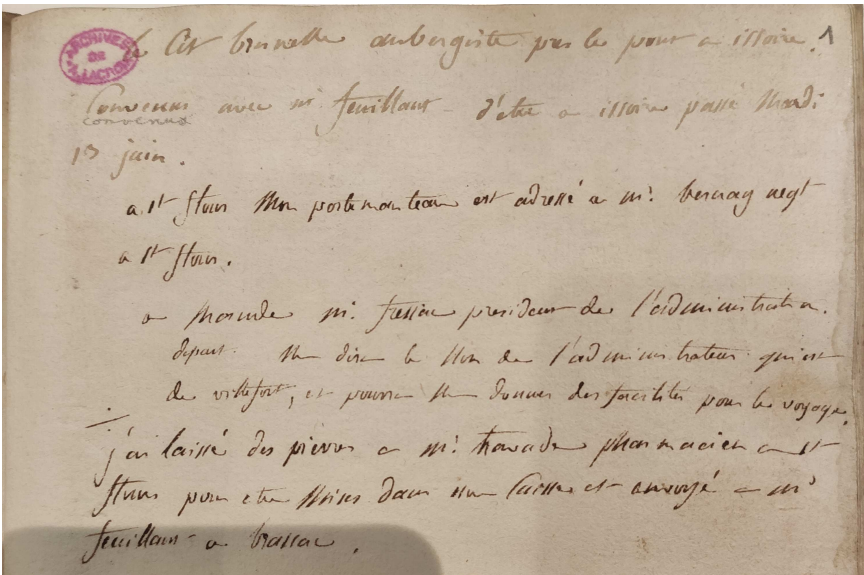 ARCHIVES DE A. LACROIX
le Cit brunelle aubergiste pres le pont a issoire. 1
Convenus avec mr feuillant d'etre a issoire passé Mardi
convenus
13 juin.
a st flour Mon portemanteau est adressé a mr. bernag negt
a st flour.
a Mande mr. fressac president de l'administration.
depart. Me dira le Nom de l'administrateur qui est
de villefort, et pourra Me donner des facilités pour le voyage.
j'ai laissé des pierres a mr. Pharmacien a st
flour pour etre Mises dans une Caisse et envoyé a mr
feuillant a brassac.